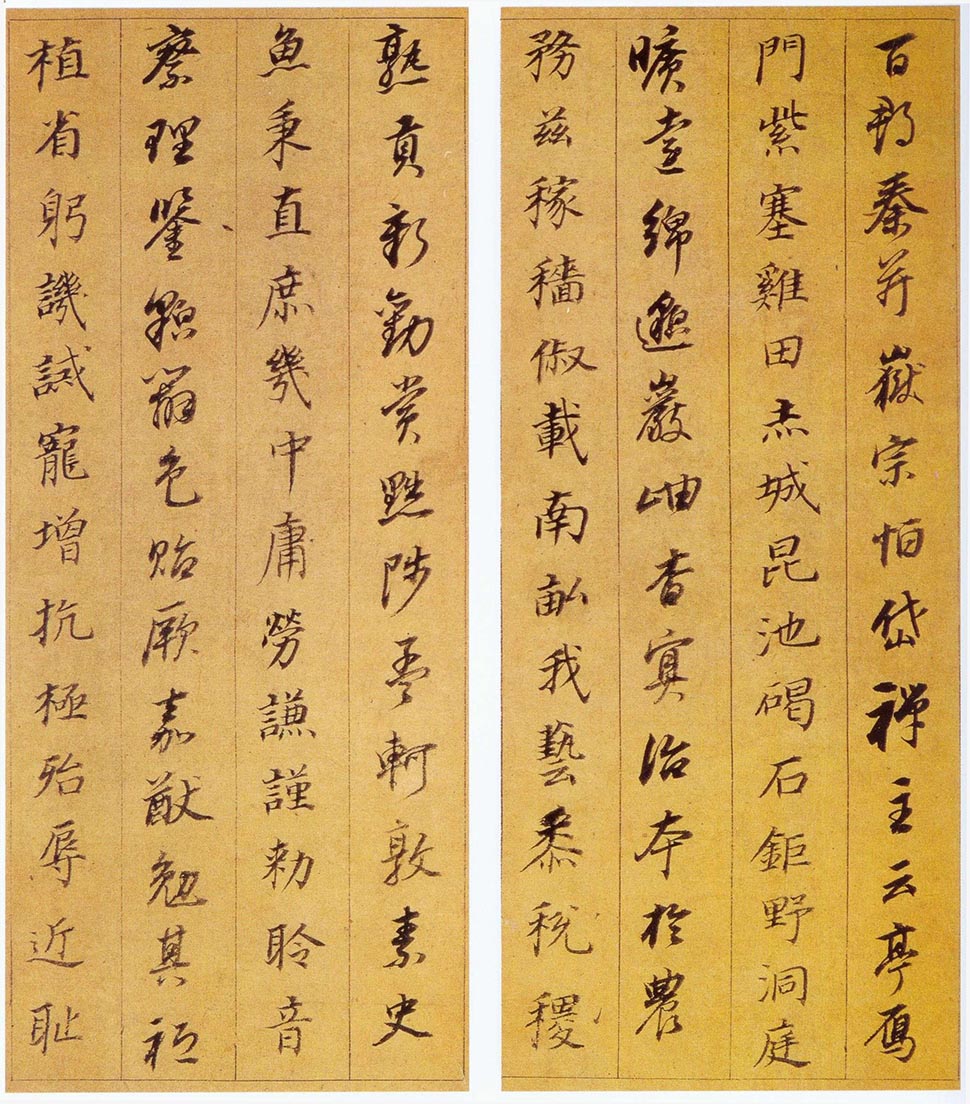 百郡秦并嶽宗恒岱禪主云亭鴈
門紫塞雞田赤城昆池碣石鉅野洞庭
曠遠綿邈巖岫杳冥治本於農
務茲稼穡俶載南畝我藝黍稅稷
熟貢新勸賞黜陟孟軻敦素史
魚秉直庶幾中庸勞謙謹勑聆音
察理鑒貌辯色貽厥嘉猷勉其祗
植省躬譏誡寵增抗極殆辱近耻